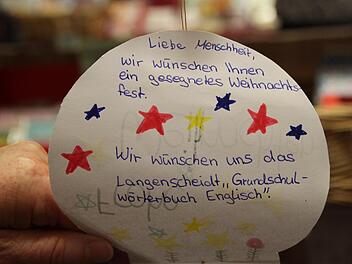 Liebe Menschheit,
wir wünschen Ihnen
ein gesegnetes Weihnachts-
fest.
Wir wünschen uns das
Langenscheidt „Grundschul-
wörterbuch Englisch".